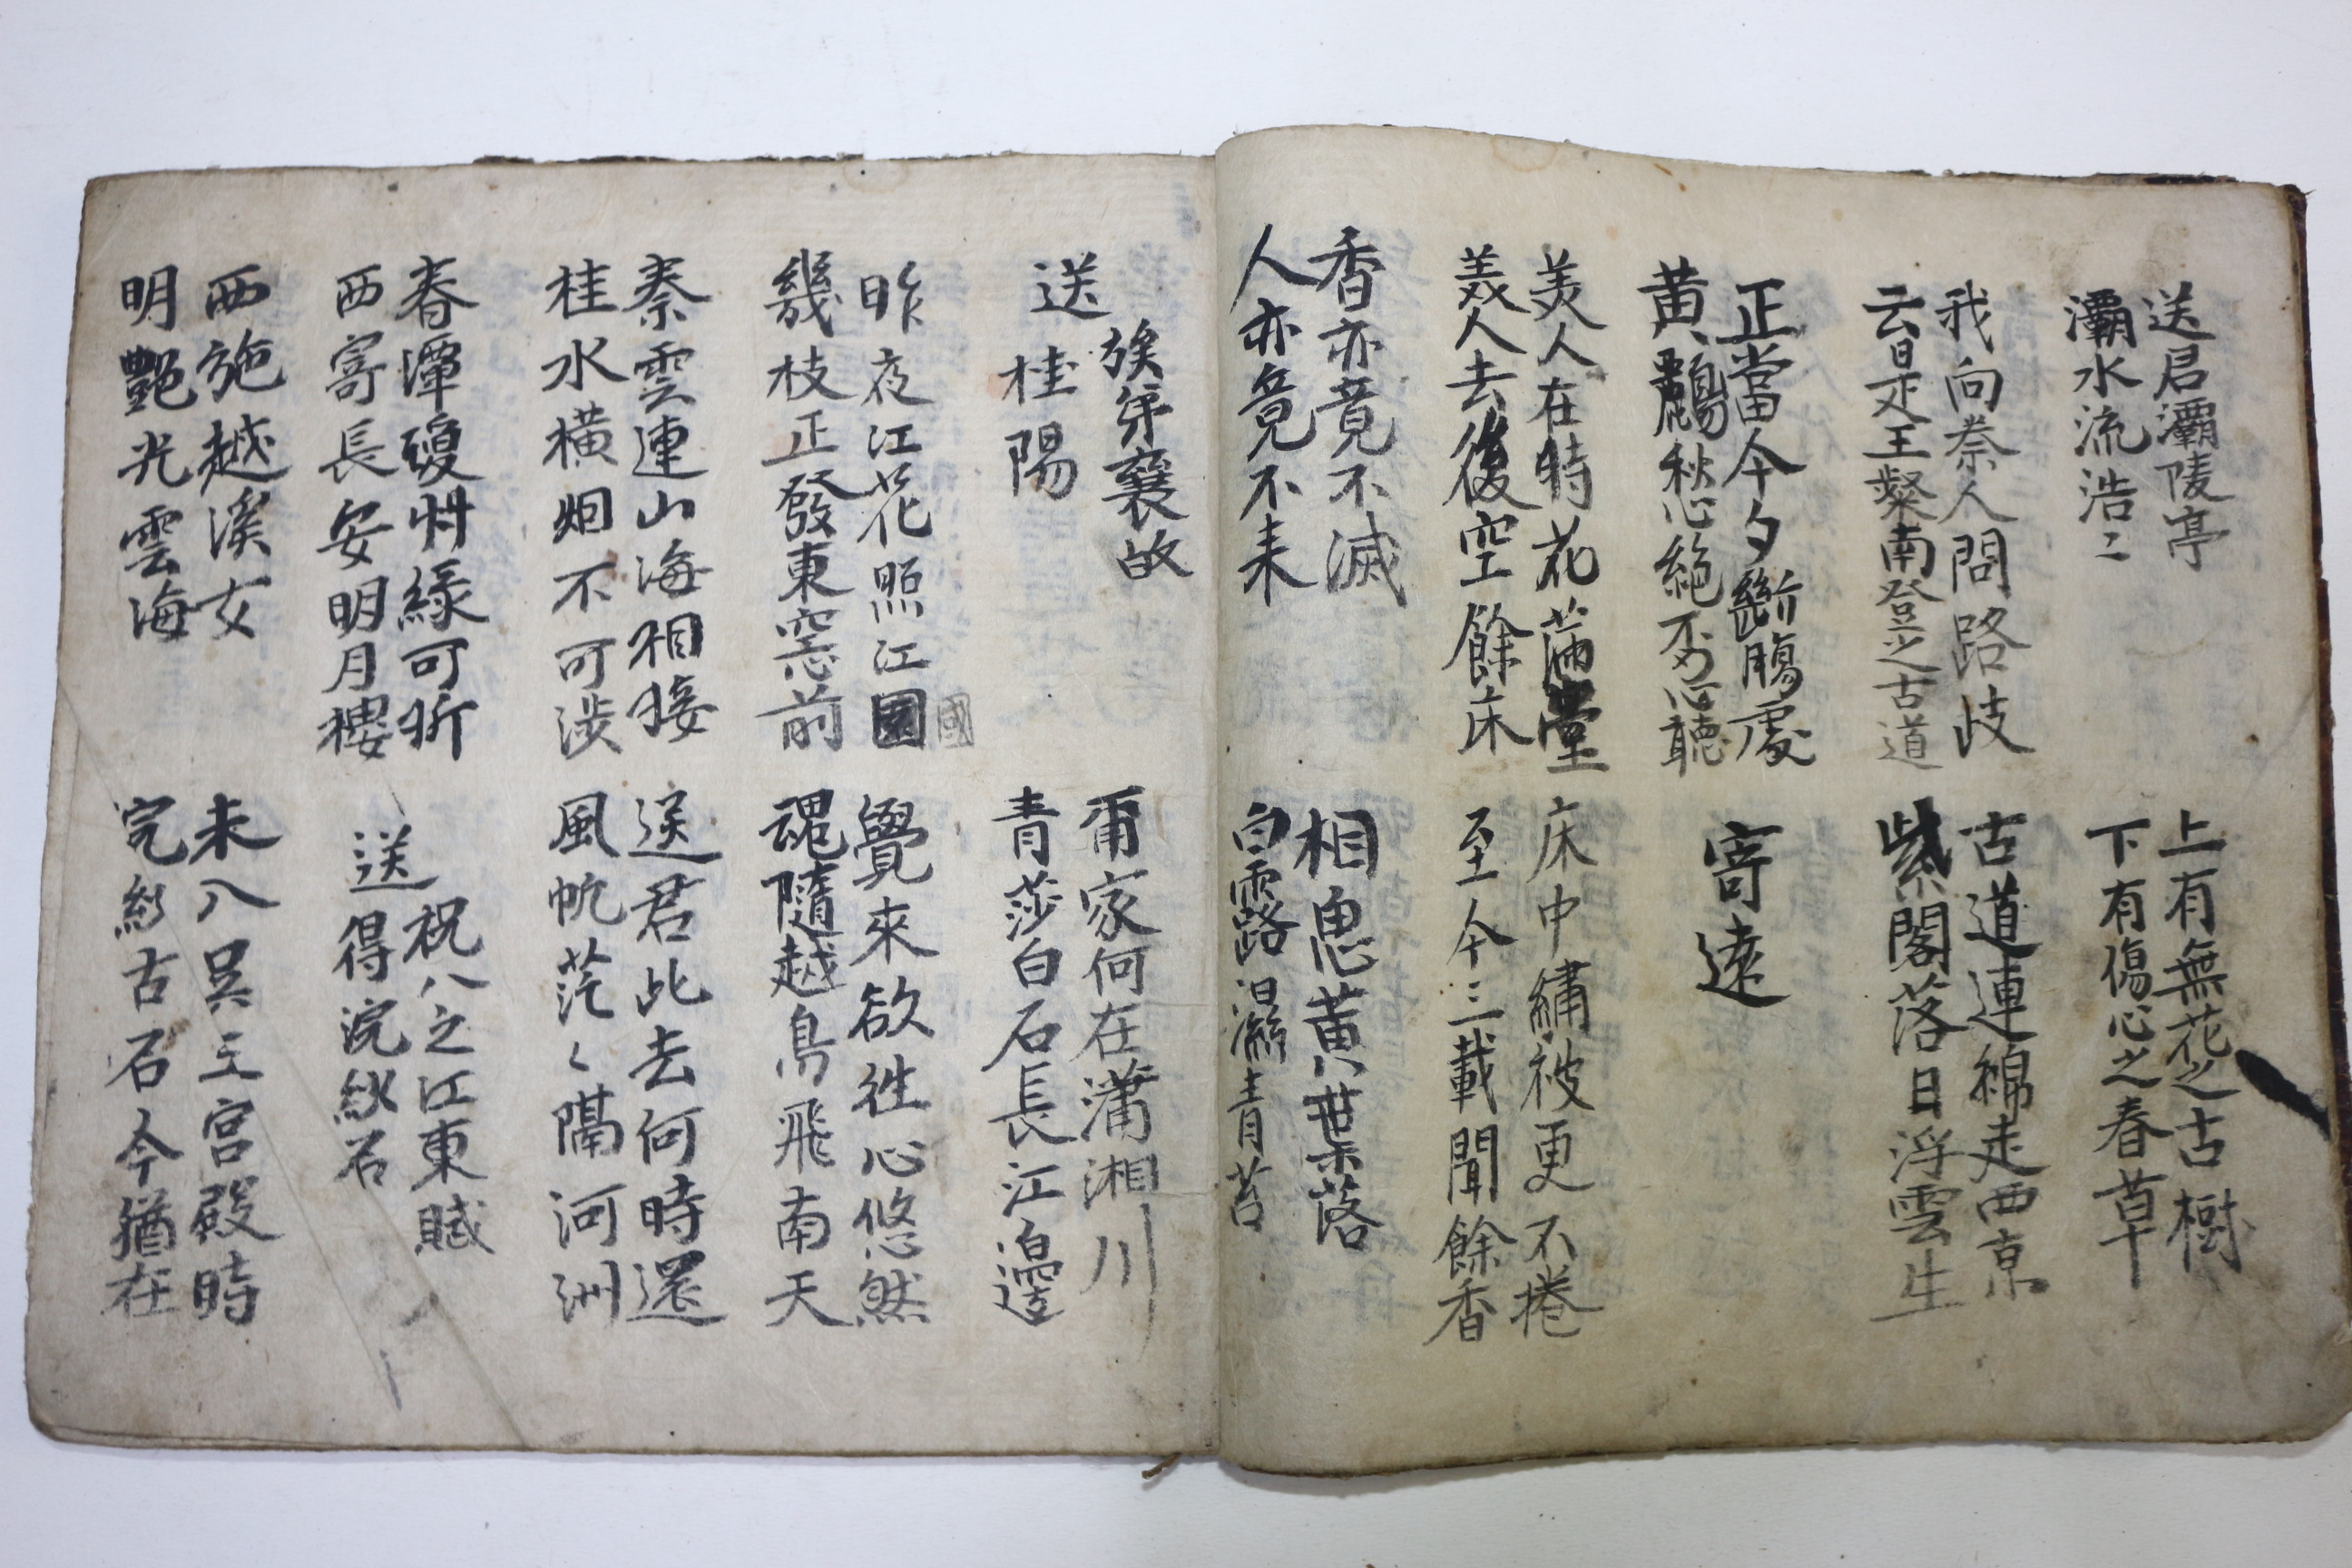 送君灞陵亭
灞水流浩〻
上有無花之古樹
下有傷心之春草
我向秦人問路歧
云是王粲南登之古道
古道連綿走西京
紫閣落日浮雲生
正當今夕斷腸處
黃鸝愁絶不忍聽
寄遠
美人在時花滿堂
美人去後空餘床
床中繡被更不捲
至今三載聞餘香
香亦竟不滅
人亦竟不来
相思黃葉落
白露濕青苔
送
族弟襄故
桂陽
爾家何在瀟湘川
青莎白石長江邊
昨夜江花照江國
國
幾枝正發東窓前
覺來欲往心悠然
魂隨越鳥飛南天
秦雲連山海相接
桂水橫烟不可涉
送君此去何時還
風帆茫〻隔河洲
春潭瓊艸綠可折
西寄長安明月樓
送
祝八之江東賦
得浣紗石
西施越溪女
明艷光雲海
未入吳王宮殿時
浣紗古石今猶在